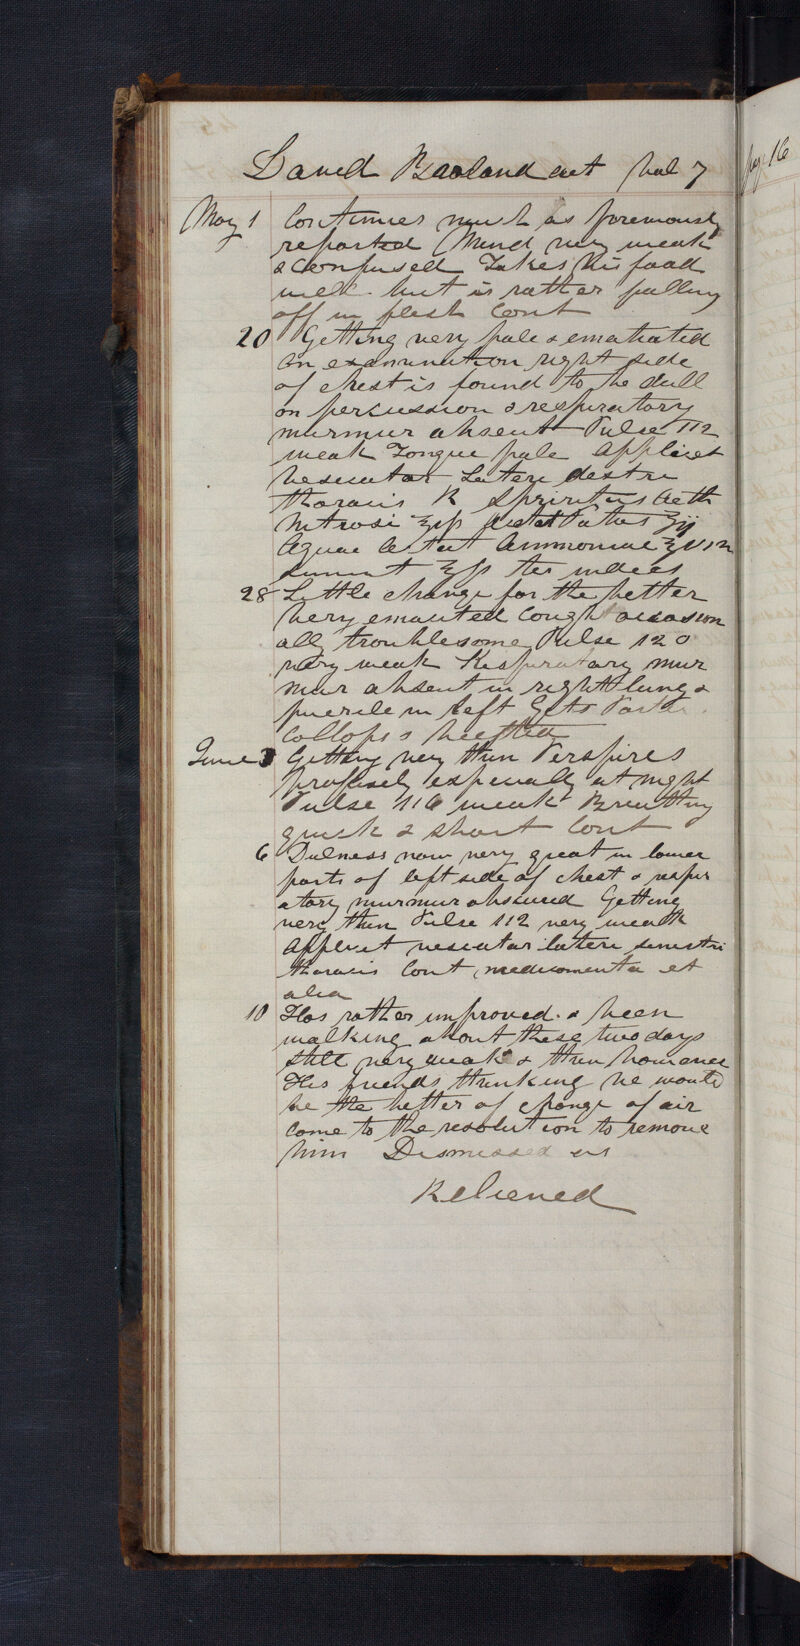 David Borland aet Vol 7
pag. 16
May 1 Continues much as formerly
reported Mind very weak
& confused Takes his food
well but is rather falling
off in flesh Cont
20 Getting very pale & emaciated
on examination right side
of chest is found to be dull
on percussion & respiratory
murmur absent Pulse 112
weak Tongue pale Applicet
vesicator Lateri dextri
thoracis R Spiritus Aeth
Nitrosi ʒijs Potas ʒij
Aquae Acetat Ammoniae
sumat ʒfs ter indies
28 Little change for the better
Very emaciated Cough occasion
ally troublesome Pulse 120
very weak Respiratory mur
mur absent in right lung &
puerile in left Gets
Collops & beeftea
June 3 Getting very thin Perspires
profusely especially at night
Pulse 116 weak Breathing
quick & short Cont
6 Dulness now very great in lower
parts of left side of chest & respir
atory murmur obscured Getting
very thin Pulse 112 very weak
Applicet vesicator lateri sinistri
thoracis Cont medicamenta et
alia
10 Has rather improved & been
walking about these two days
still very weak & thin however
His friends thinking he would
be the better of change of air
come to the resolution to remove
him Dismissed as
Relieved